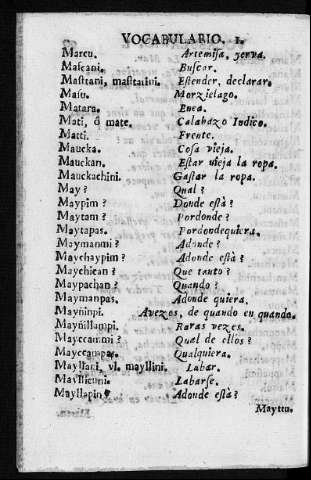 VOCABULARIO. I.
Marcu. Artemisa, yerva.
Mascani. Buscar.
Mastani, mastarini. Estender, declarar.
Masu. Morzielago.
Matara. Enea.
Mati, ó mate. Calabazo Indico.
Matti. Frente.
Maucka. Cosa vieja.
Mauckan. Estar vieja la ropa.
Mauckachini. Gastar la ropa.
May? Qual?
Maypim? Donde està?
Maytam? Pordonde?
Maytapas. Pordondequiera.
Maymanmi? Adonde?
Maychaypim? Adonde està?
Maychican? Que tanto?
Maypachan? Quando?
Maymanpas. Adonde quiera.
Mayñinpi. Avezes, de quando en quando.
Mayñillampi. Raras vezes.
Mayccammi? Qual de ellos?
Mayccanpas. Qualquiera.
Mayllani, vl. mayllini. Labar.
Mayllicuni. Labarse.
Mayllapin? Adonde està?
Mayttu.